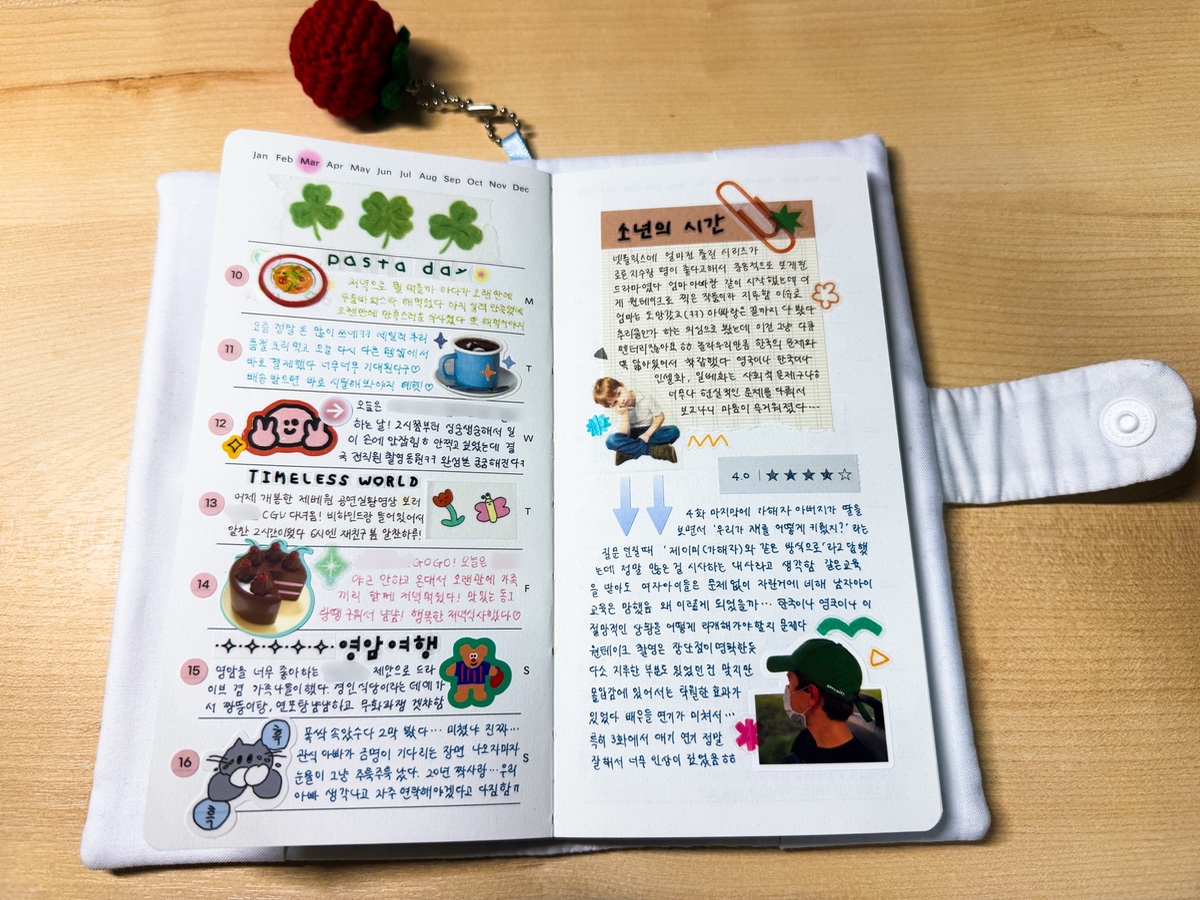 Jan Feb Mar Apr May Jun Jul Aug Sep Oct Nov Dec
pasta day
10
M
저녁으로 뭘 먹을까 하다가 오랜만에
해먹었다 아직 실력 안죽었네
오랜만에 만족스러운 식사했다 또 해먹어야지
11
T
요즘 정말 돈 많이 쓰네ㅋㅋ 세일러
품절 크리 먹고 오늘 다시 다른 텐쎌에서
바로 결제했다 너무너무 기대된다구♡
배송 받으면 바로 시필해봐야지 예헷!♡
12
W
오늘은
하는 날! 2시쯤부터 싱숭생숭해서 일
이 손에 안잡힘ㅎ 안찍고 싶었는데 결
국 전직원 촬영 동원ㅋㅋ 완성본 궁금해진다ㅋ
TIMELESS WORLD
13
T
어제 개봉한 제베원 공연실황영상 보러
CGV 다녀옴! 비하인드랑 들어있어서
알찬 2시간이었다 6시엔 재친구 봄 알찬하루!
14
F
GOGO! 오늘은
야근 안하고 온대서 오랜만에 가족
끼리 함께 저녁먹었다! 맛있는
구워서 냠냠! 행복한 저녁식사였다♡
영암여행
15
S
영암을 너무 좋아하는 제안으로 드라
이브 겸 가족나들이했다 경인식당이라는 데에가
서 짱뚱이탕, 연포탕냠냠하고 무화과잼 겟챠함
16
S
흑
흑
폭싹 속았수다 2막 봤다… 미쳤나 진짜…
관식 아빠가 금명이 기다리는 장면 나오자마자
눈물이 그냥 주륵주륵 났다. 20년 짝사랑… 우리
아빠 생각나고 자주 연락해야겠다고 다짐함ㅠ
소년의 시간
넷플릭스에 얼마전 풀린 시리즈가
로튼지수랑 평이 좋다고해서 충동적으로 보게된
드라마였다 엄마 아빠랑 같이 시작했는데
게 원테이크로 찍은 작품이라 지루함 이슈로
엄마는 도망갔고(ㅋㅋ) 아빠랑은 끝까지 다 봤다
추리물인가 하는 의심으로 봤는데 이건 그냥 다큐
멘터리잖아요ㅎㅎ 놀라우리만큼 한국의 문제와
똑 닮아있어서 착잡했다 영국이나 한국이나
인셀화, 일베화는 사회적 문제구나ㅎ
너무나 현실적인 문제를 다뤄서
보고나니 마음이 무거워졌다…
4.0 | ★★★★☆
4화 마지막에 가해자 아버지가 딸을
보면서 '우리가 쟤를 어떻게 키웠지?' 라는
질문 던질때 '제이미(가해자)와 같은 방식으로'라고 답했
는데 정말 많은걸 시사하는 대사라고 생각함 같은교육
을 받아도 여자아이들은 문제 없이 자란거에 비해 남자아이
교육은 망했음 왜 이렇게 되었을까… 한국이나 영국이나 이
절망적인 상황을 어떻게 타개해가야할지 문제다
원테이크 촬영은 장단점이 명확한듯
다소 지루한 부분도 있었던건 맞지만
몰입감에 있어서는 탁월한 효과가
있었다 배우들 연기가 미쳐서…
특히 3화에서 애기 연기 정말
잘해서 너무 인상이 깊었음ㅎㅎ